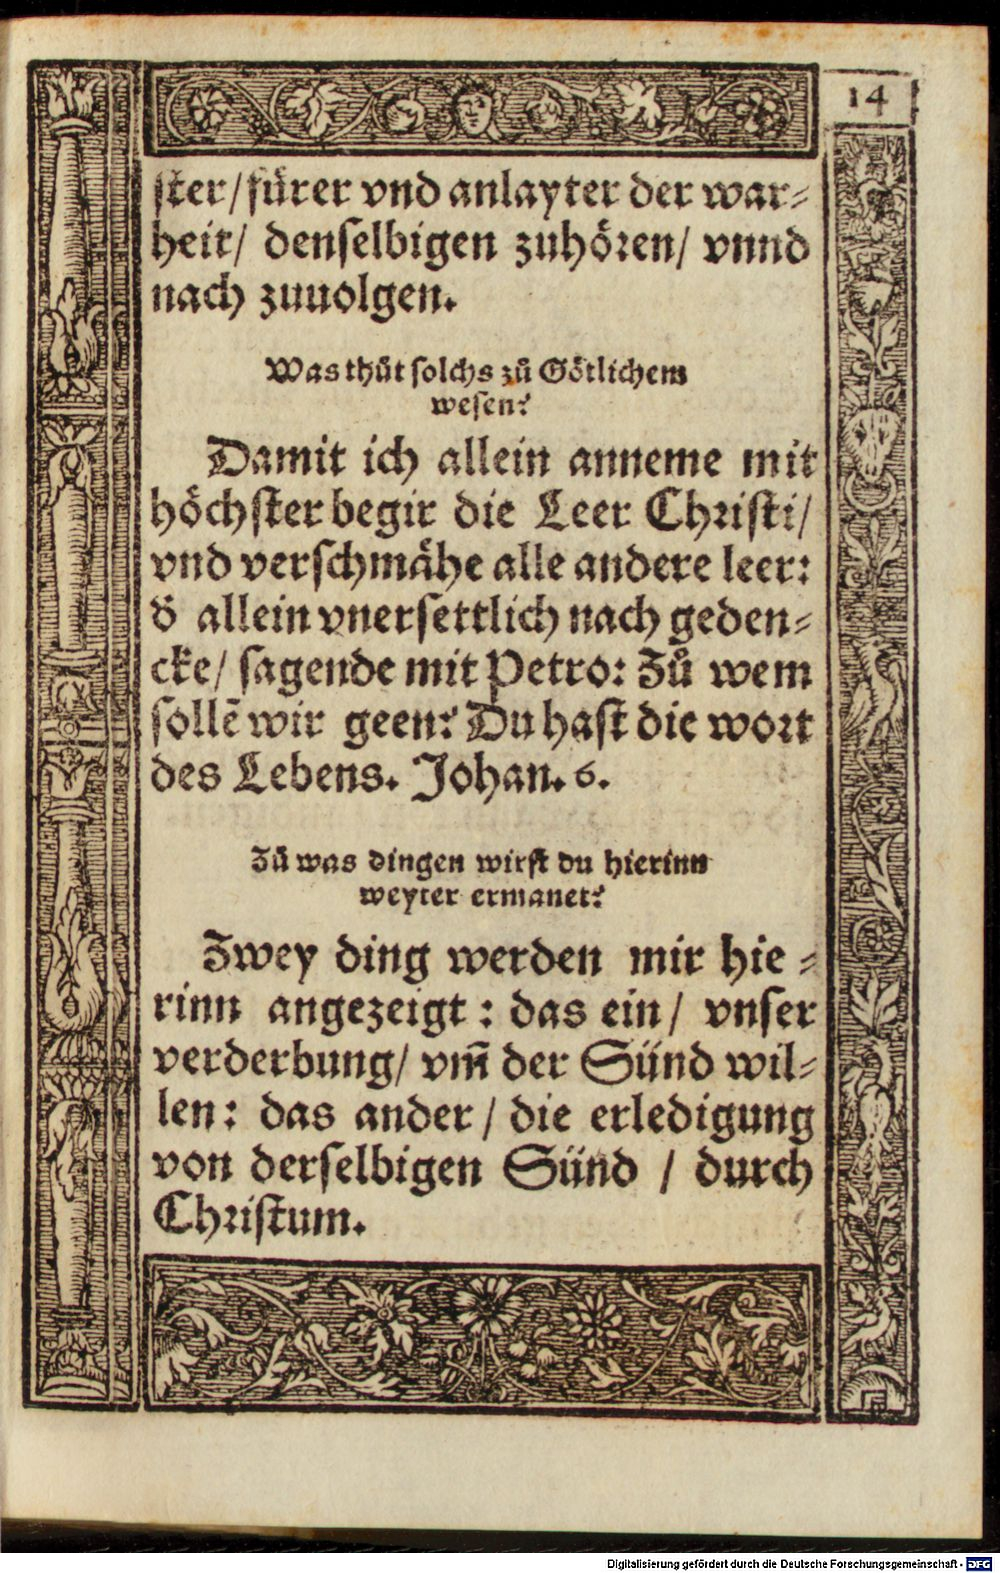 14
ster/ fürer vnd anlayter der war⸗
heit/ denselbigen zuhören/ vnnd
nach zuuolgen.
Was thůt solchs zů Götlichem
wesen?
Damit ich allein anneme mit
höchster begir die Leer Christi/
vnd verschmähe alle andere leer:
ð allein vnersettlich nach geden⸗
cke/ sagende mit Petro: Zů wem
sollē wir geen? Du hast die wort
des Lebens. Johan. 6.
Zů was dingen wirst du hierinn
weyter ermanet?
Zwey ding werden mir hie⸗
rinn angezeigt: das ein/ vnser
verderbung/ vm̄ der Sünd wil⸗
len: das ander/ die erledigung
von derselbigen Sünd/ durch
Christum.
Digitalisierung gefördert durch die Deutsche Forschungsgemeinschaft - DFG